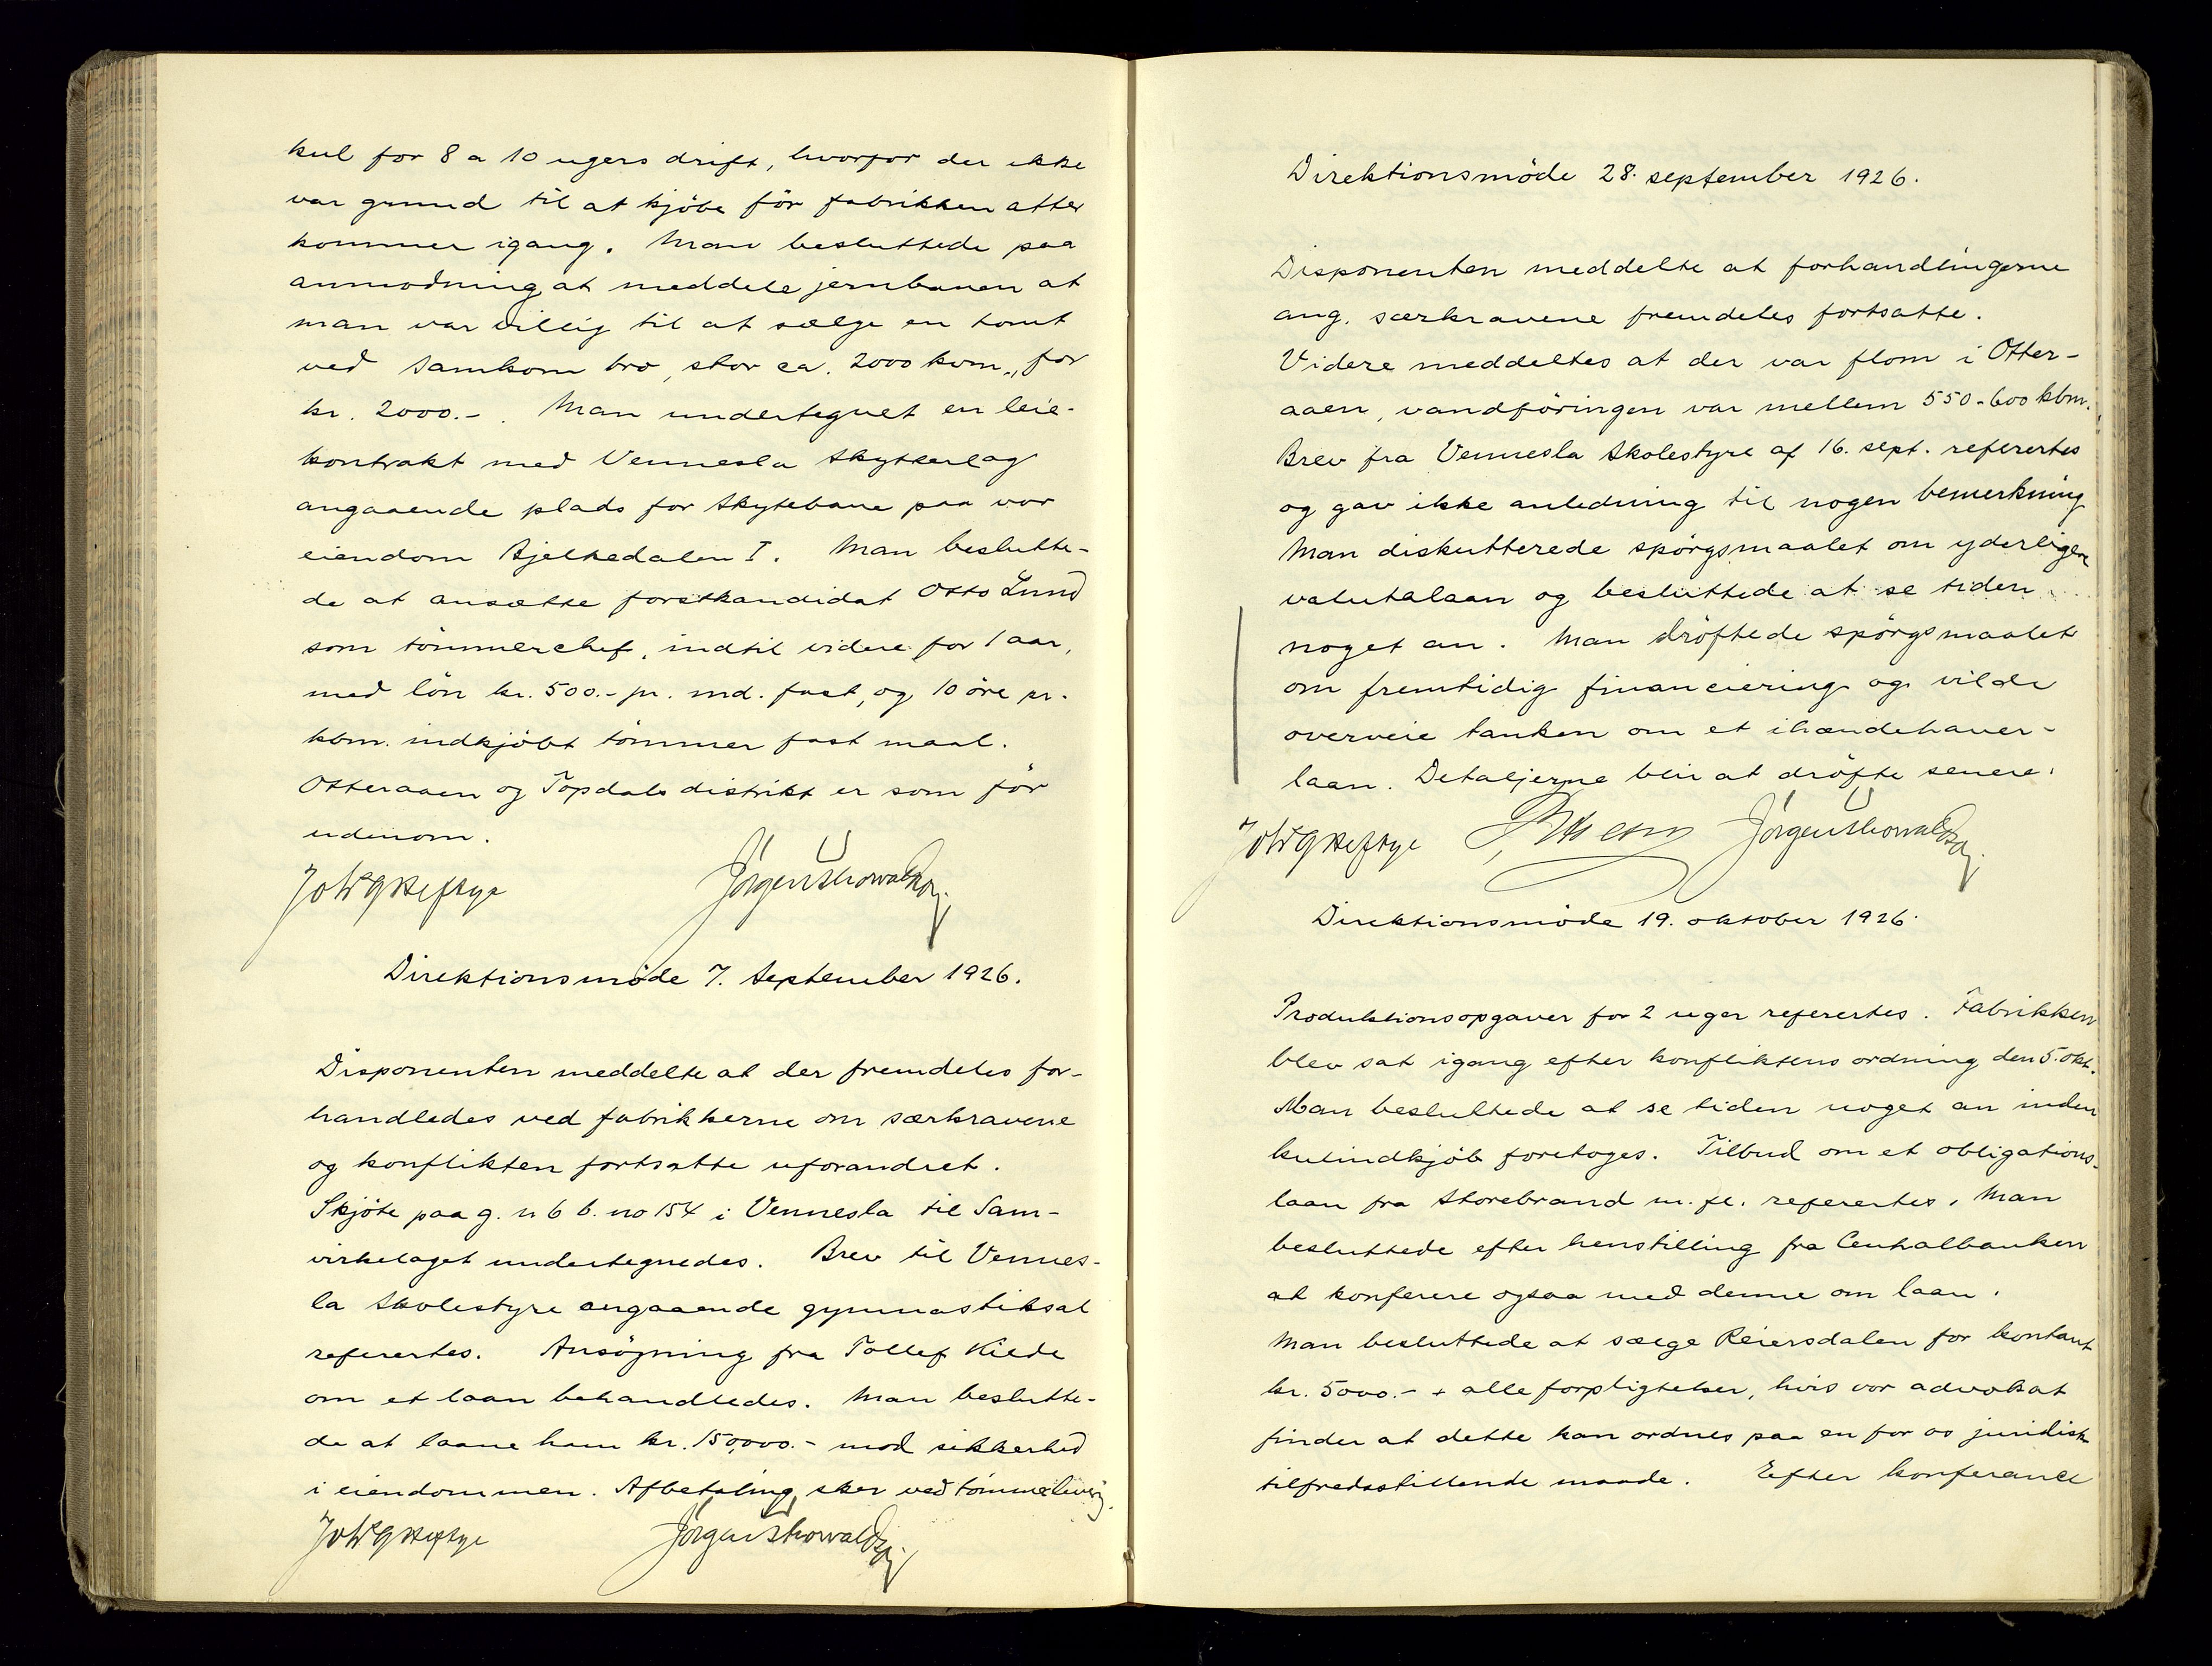 kul for 8 a 10 ugers drift, hvorfor der ikke
var grund til at kjöbe för fabrikken atter
kommer igang. Man besluttede paa
anmodning at meddele jernbanen at
man var villig til at sælge en tomt
ved Samkom bro, stor ca. 2000 kvm., for
kr. 2000.-. Man undertegnet en leie-
kontrakt med Vennesla Skytterlag
angaaende plads for Skytebane paa vor
eiendom Kjelkedalen I. Man beslutte-
de at ansætte forstkandidat Otto Lund
som tömmerchef, indtil videre for 1 aar,
med lön kr. 500.- pr. md. fast, og 10 öre pr.
kbm. indkjöbt tömmer fast maal.
Otteraaen og Topdals distrikt er som för
udenom.
Joh Heftye Jörgen Thorwaldson
Direktionsmöde 7. September 1926.
Disponenten meddelte at der fremdeles for-
handledes ved fabrikkerne om særkravene
og konflikten fortsatte uforandret.
Skjöte paa g. n 6 b. no 154 i Vennesla til Sam-
virkelaget undertegnedes. Brev til Vennes-
la Skolestyre angaaende gymnastiksal
referertes. Ansögning fra Tollef Kilde
om et laan behandledes. Man beslutte-
de at laane ham kr. 150,000.- mod sikkerhed
i eiendommen. Afbetaling sker ved tömmer
Heftye Jörgen Thorwaldson
Direktionsmöde 28. september 1926.
Disponenten meddelte at forhandlingerne
ang. særkravene fremdeles fortsatte.
Videre meddeltes at der var flom i Otter-
aaen, vandföringen var mellem 550-600 kbm.
Brev fra Vennesla Skolestyre af 16. sept. referertes
og gav ikke anledning til nogen bemerkning
Man diskutterede spörgsmaalet om yderligere
valutalaan og besluttede at se tiden
noget an. Man dröftede spörgsmaalet
om fremtidig financiering og vilde
overveie tanken om et ihændehaver-
laan. Detaljerne blir at dröfte senere.
Heftye Jörgen Thorwaldson
Direktionsmöde 19. oktober 1926.
Produktionsopgaver for 2 uger referertes. Fabrikken
blev sat igang efter konfliktens ordning den 5. okt.
Man besluttede at se tiden noget an inden
kulindkjöb foretoges. Tilbud om et obligations-
laan fra Storebrand m. fl. referertes. Man
besluttede efter henstilling fra Centralbanken
at konferere ogsaa med denne om laan.
Man besluttede at sælge Reiersdalen for kontant
kr. 5000.- + alle forpligtelser, hvis vor advokat
finder at dette kan ordnes paa en for os juridisk
tilfredsstillende maade. Efter konferance